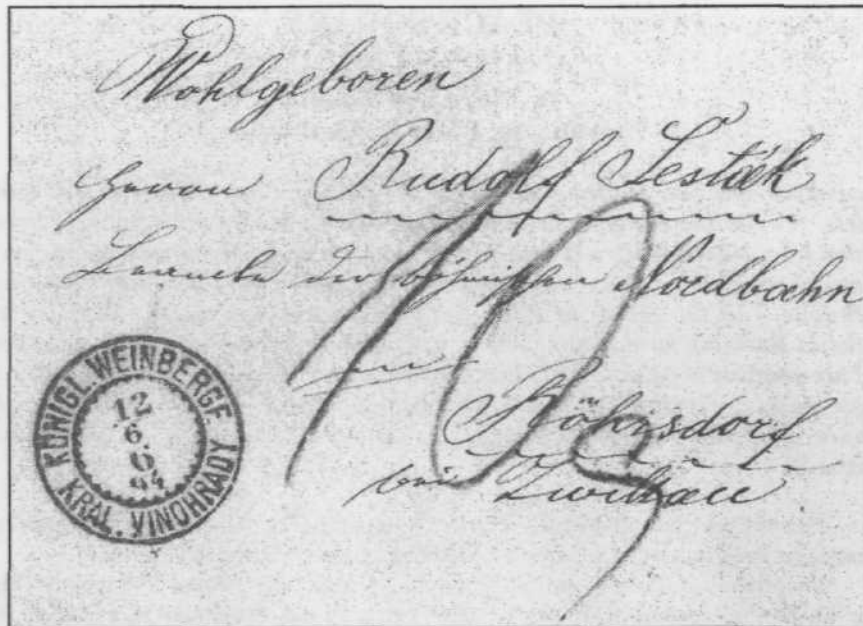 Wohlgeboren
Herrn Rudolf Šesták
Beamter der böhmischen Nordbahn
in
Röhrsdorf
bei Zwickau
KÖNIGL. WEINBERGE
12
6
6
94
KRÁL. VINOHRADY